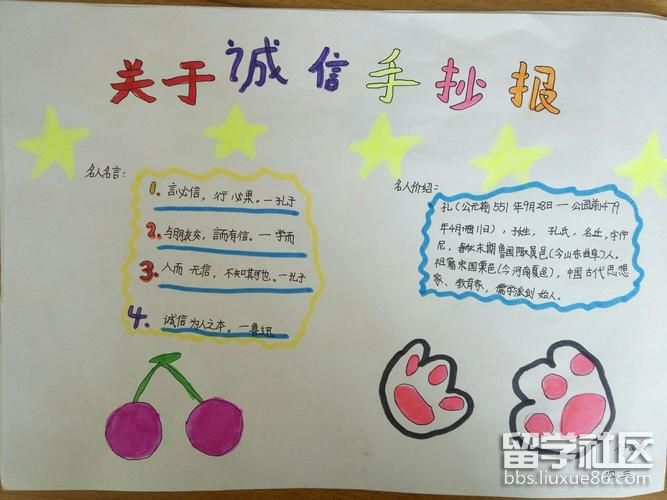 关于诚信手抄报
名人名言:
1. 言必信，行必果。一孔子
2. 与朋友交，言而有信。一学而
3. 人而无信，不知其可也。一孔子
4. 诚信为人之本。一鲁迅
名人介绍:
孔(公元前551年9月28日一公元前479
年4月11日)，子姓，孔氏，名丘，字仲
尼，春秋末期鲁国陬邑(今山东曲阜)人。
祖籍宋国栗邑(今河南夏邑)，中国古代思想
家、教育家，儒学派创始人。
留学社区
bbs.liuxue86.com